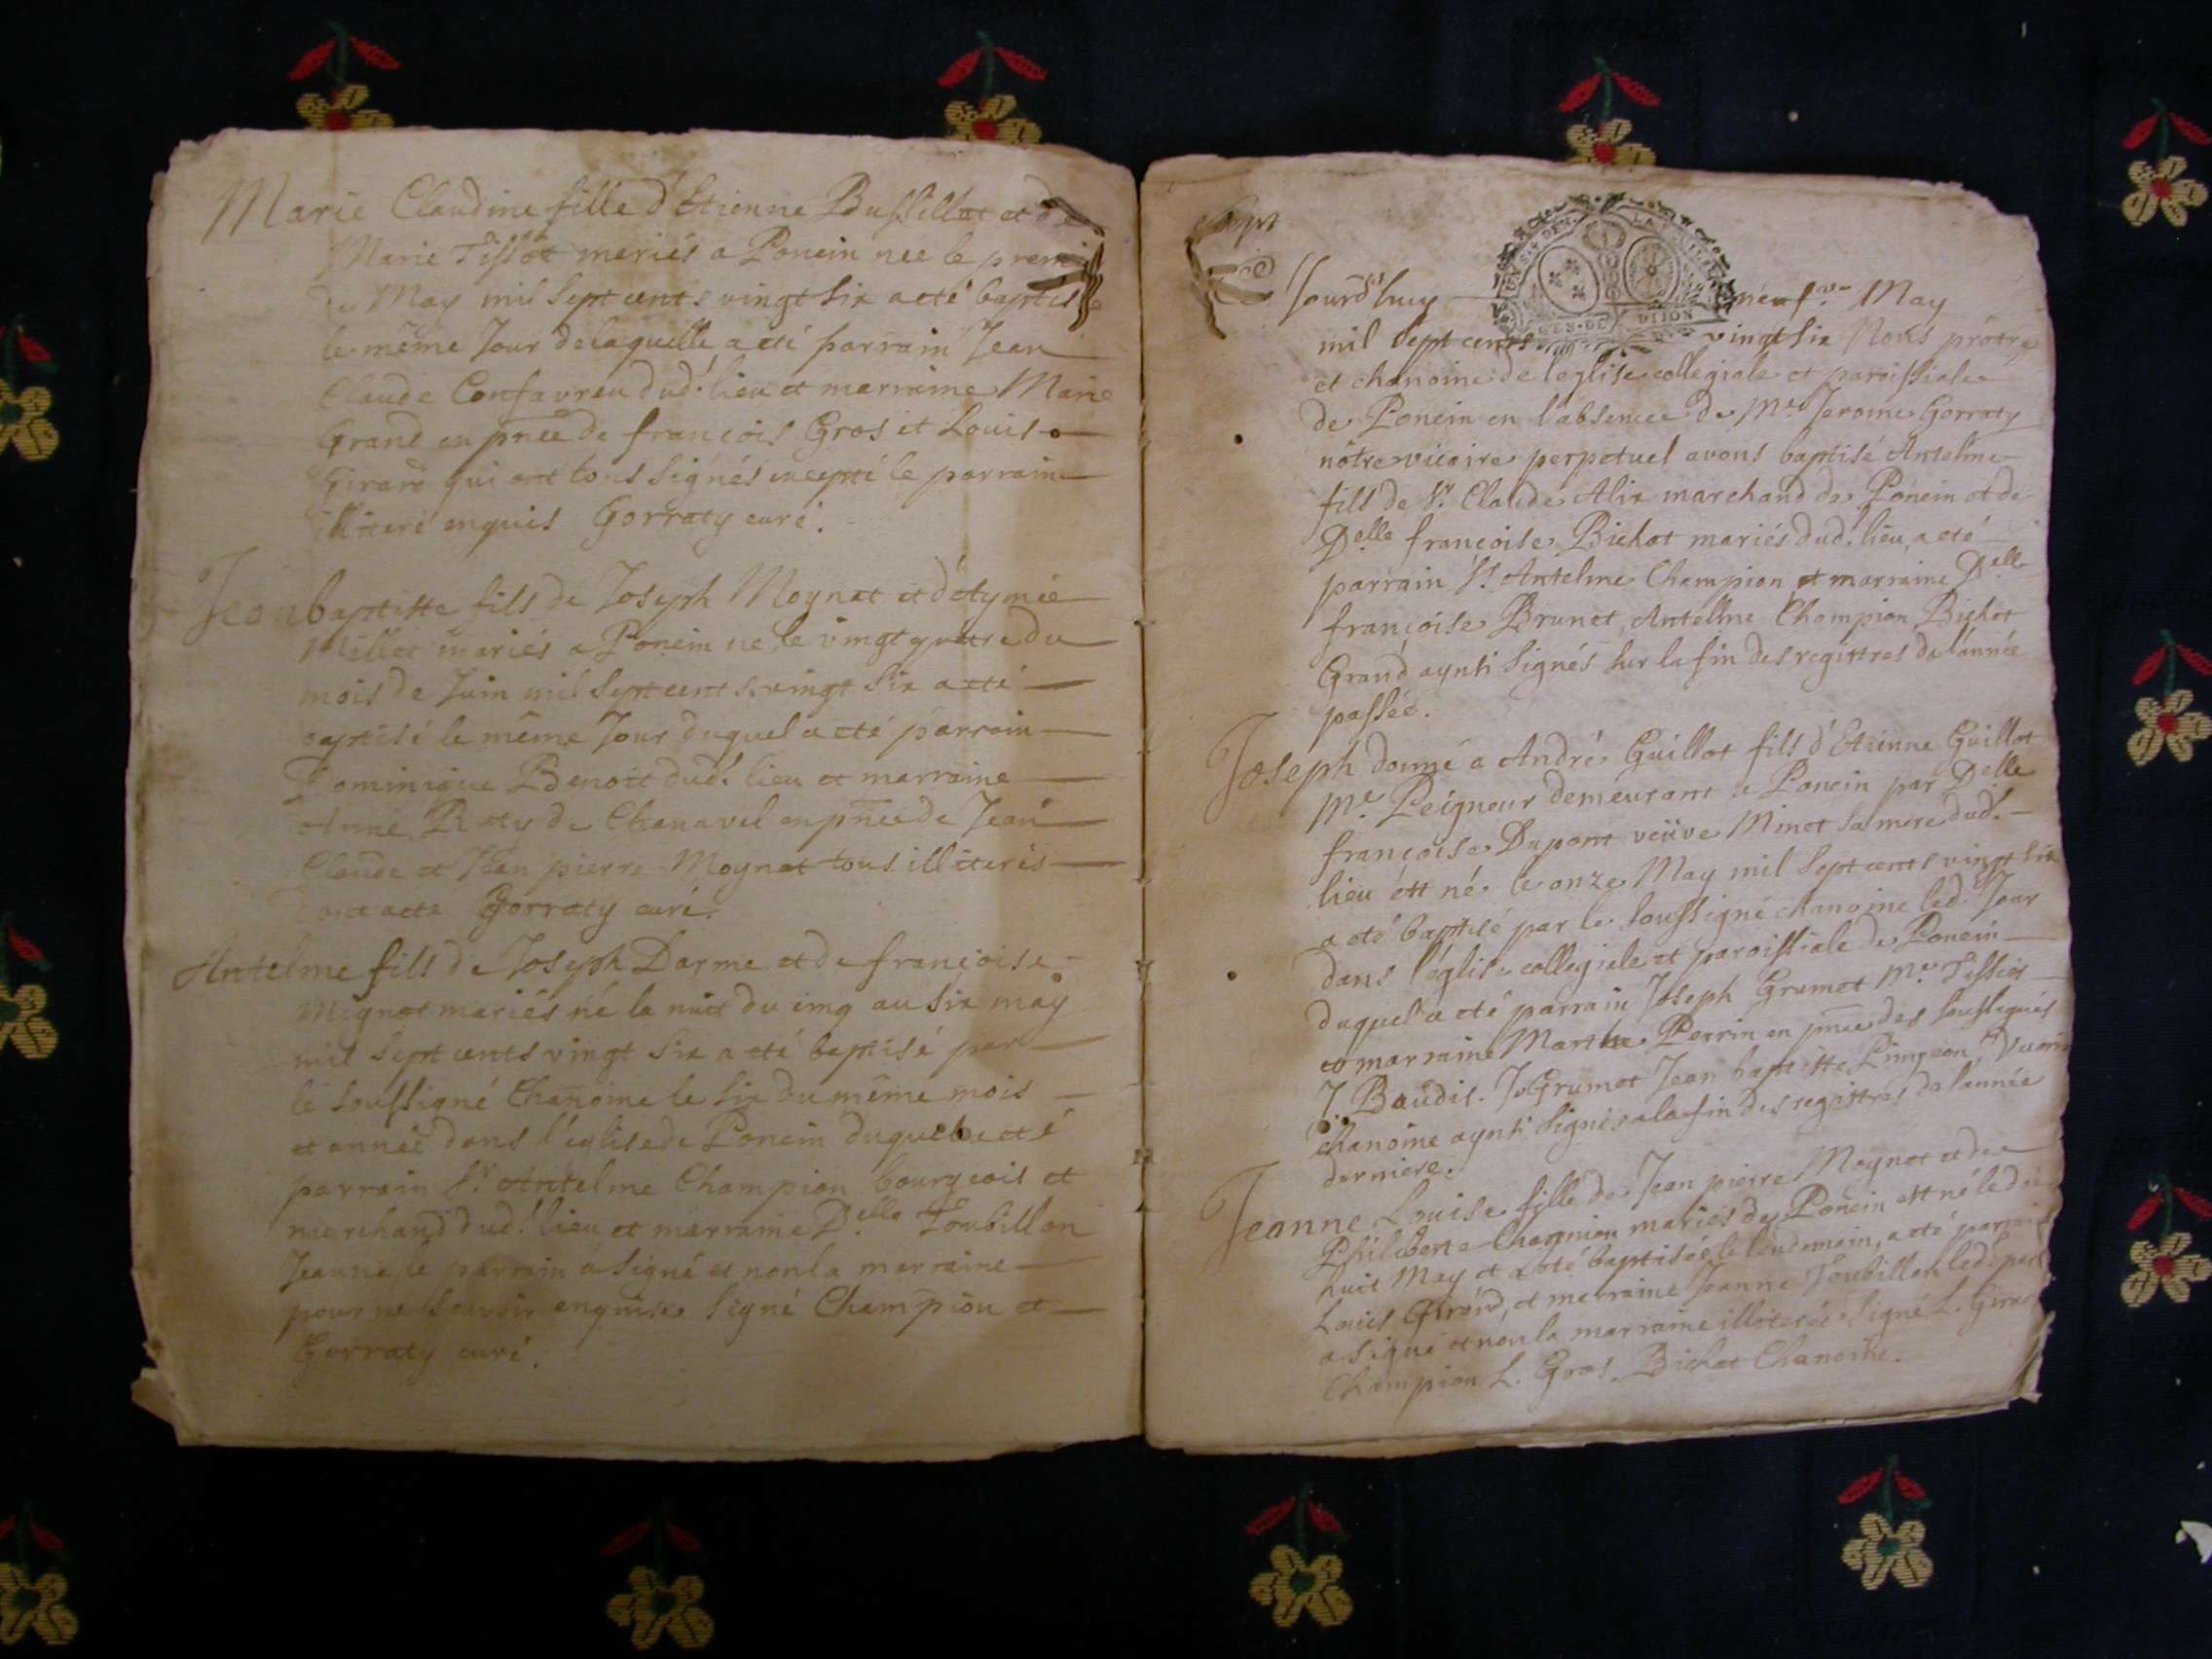 Marie Claudine fille d'Etienne Bussillat et de
Marie Tissot mariés a Poncin nee le premi
du May mil sept cents vingt six a eté baptisé
le même Jour de laquelle a eté parrain Jean
Claude Confavreu dud. lieu et marraine Marie
Grand en pñce de françois Gros et Louis
Girard qui ont tous signés excepté le parrain
illiteré enquis Gorraty curé.
Jean baptiste fils de Joseph Moynat et d'étymie
Millet mariés a Poncin né le vingt quatre du
mois de Juin mil sept cents vingt six a eté
baptisé le même Jour duquel a eté parrain
Dominique Benoit dud. lieu et marraine
Anne Raty de Chanavel en pñce de Jean
Claude et Jean pierre Moynat tous illiterés
acte Gorraty curé.
Antelme fils de Joseph Darme et de françoise
Mignot mariés né la nuit du cinq au six may
mil sept cents vingt six a eté baptisé par
le soussigné Chanoine le six du même mois
et année dans l'eglise de Poncin duquel a eté
parrain Sr. Antelme Champion bourgeois et
marchand dud. lieu et marraine Delle Toubillon
Jeanne, le parrain a signé et non la marraine
pour ne scavoir enquise signé Champion et
Gorraty curé.
GEN. DE DIJON
Jourd'huy neufve May
mil sept cents vingt six Nous prêtre
et chanoine de l'eglise collegiale et paroissiale
de Poncin en l'absence de Mre Jerome Gorraty
nôtre vicaire perpetuel avons baptisé Antelme
fils de Sr. Claude Alix marchand de Poncin et de
Delle françoise Bichat mariés dud. lieu, a eté
parrain Sr. Antelme Champion et marraine Delle
françoise Brunet, Antelme Champion, Bichat
Grand aynsi signés sur la fin des registres de l'année
passée.
Joseph donné a André Guillot fils d'Etienne Guillot
Me. Peigneur demeurant a Poncin par Delle
françoise Dupont veüve Minet sa mere dud.
lieu ett né le onze May mil sept cents vingt six
a eté baptisé par le soussigné chanoine led. Jour
dans l'église collegiale et paroissiale de Poncin
duquel a eté parrain Joseph Grumet Me. Tissier
et marraine Marthe Perrin en pñce des soussignés
J. Baudit. J. Grumet Jean baptiste Pingeon,
chanoine aynsi signés a la fin des registres de l'année
derniere.
Jeanne Louise fille de Jean pierre Moynat et de
Philiberte Chagniou mariés de Poncin ett né le dix
huit May et a eté baptisée le lendemain, a eté parrain
Louis Girard, et marraine Jeanne Toubillon led. par
a signé et non la marraine illiterée. signé L. Girar
Champion L. Gros. Bichat Chanoine.